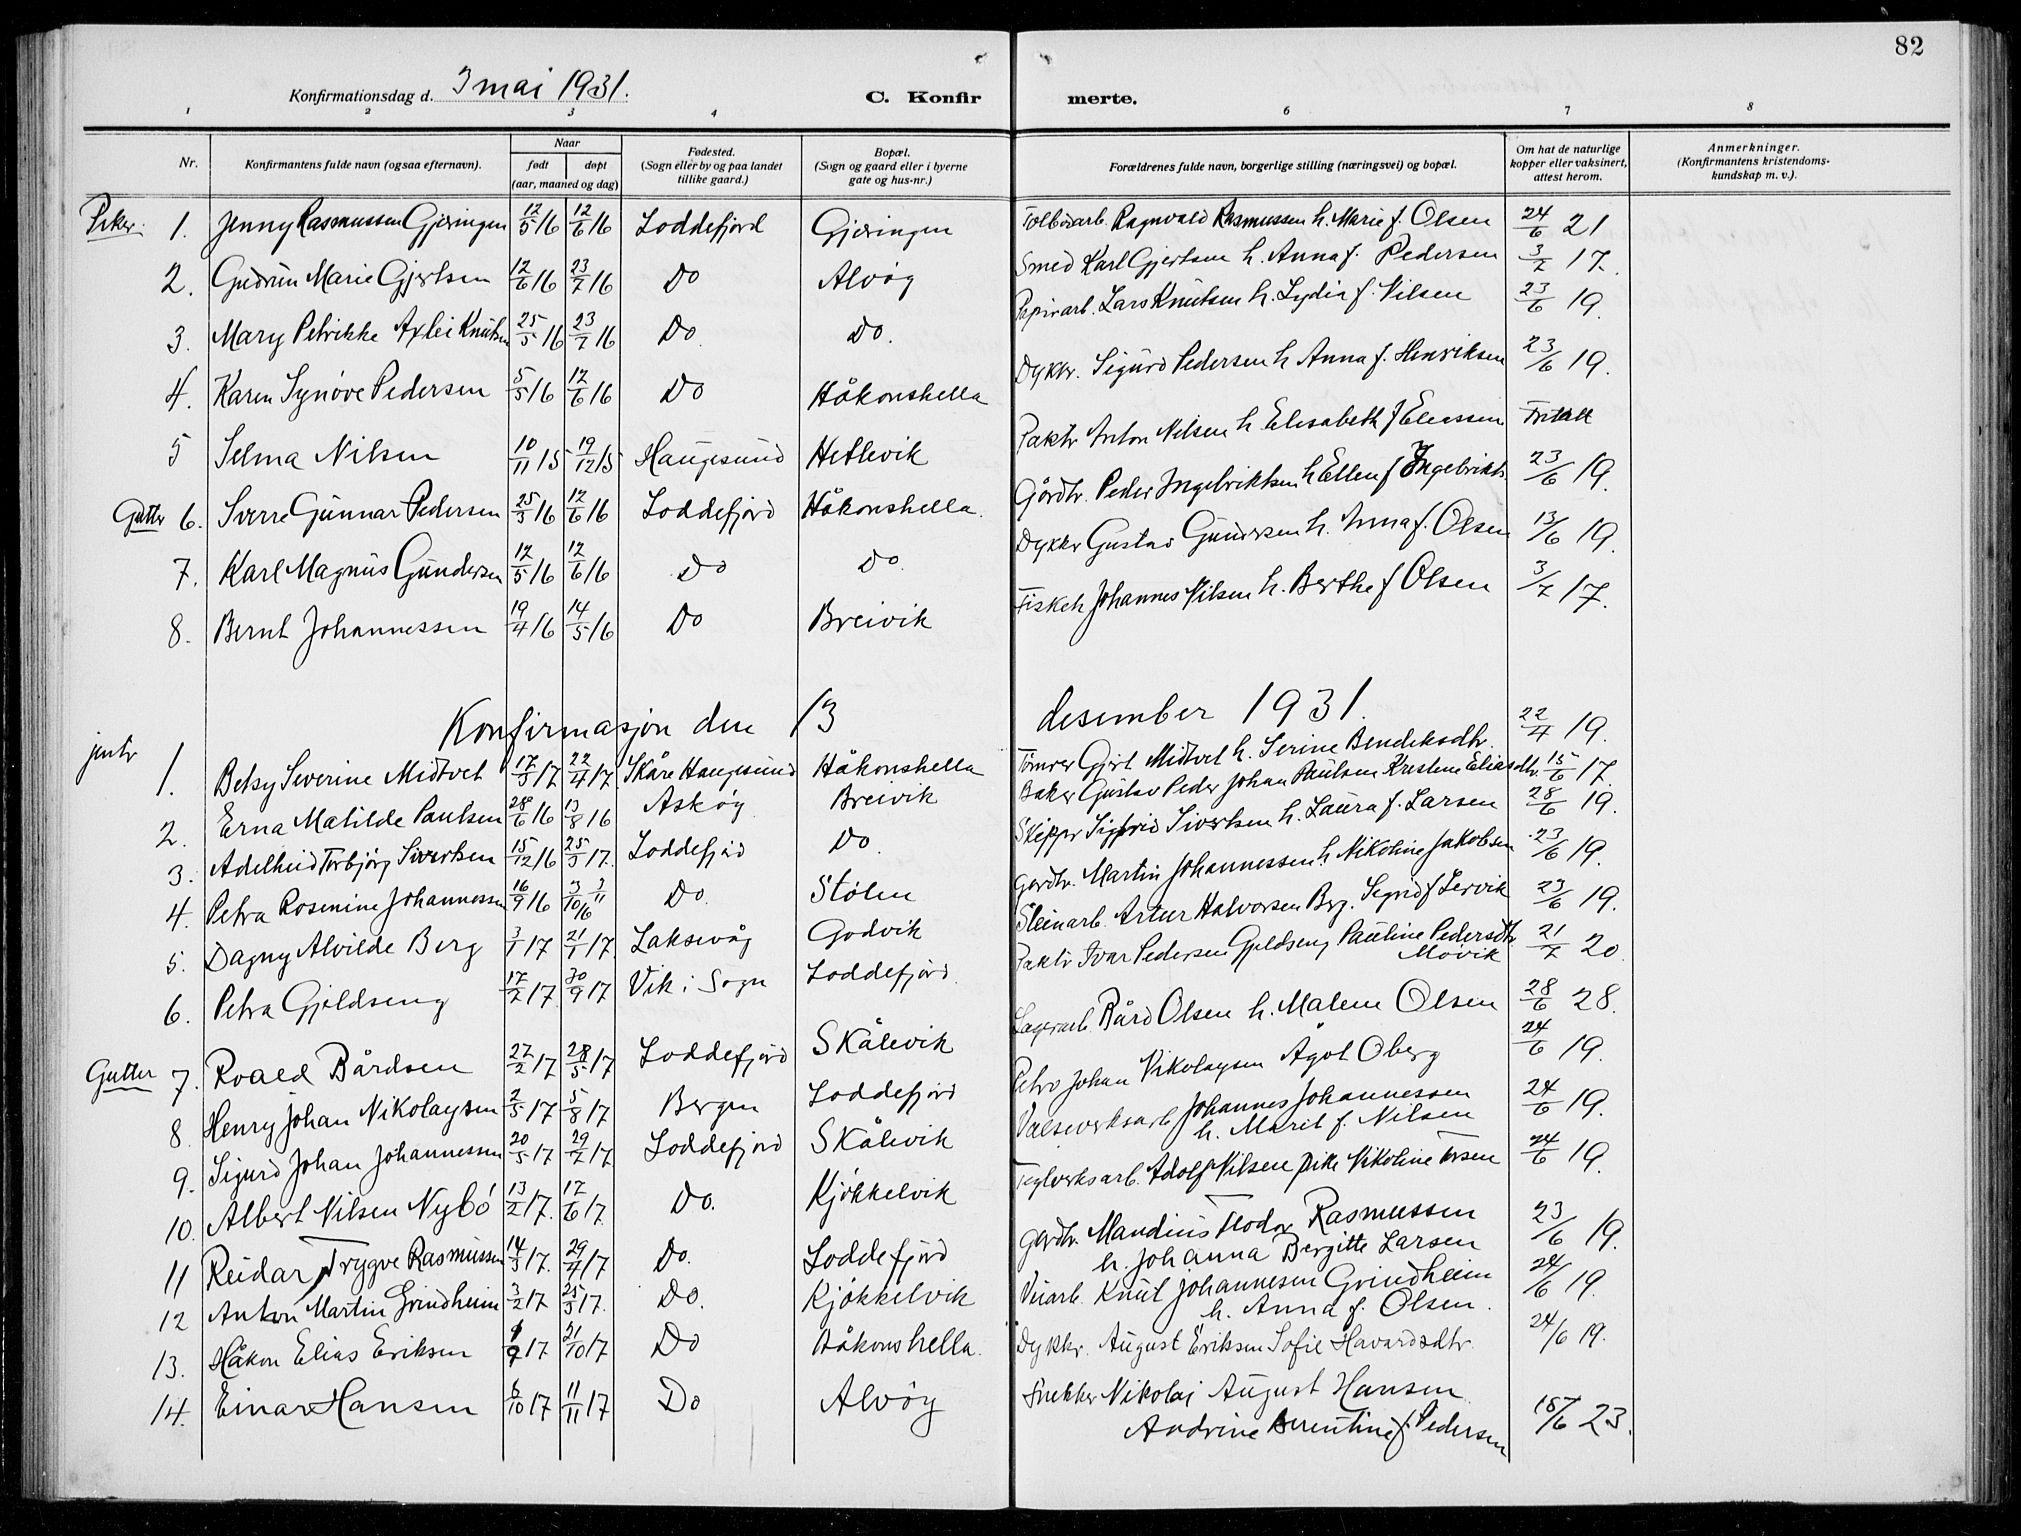 82
Konfirmationsdag d. 3 mai 1931. C. Konfir merte.
1 2 3 4 6 7 8
Nr. Konfirmantens fulde navn (ogsaa efternavn). Naar født døpt (aar, maaned og dag) Fødested. (Sogn eller by og paa landet tillike gaard.) Bopæl. (Sogn og gaard eller i byerne gate og hus-nr.) Forældrenes fulde navn, borgerlige stilling (næringsvei) og bopæl. Om hat de naturlige kopper eller vaksinert, attest herom. Anmerkninger. (Konfirmantens kristendoms-kundskap m. v.).
Piker. 1. Jenny Rasmussen Gjeringen 12/5 16 12/6 16 Loddefjord Gjeringen Ragnvald Rasmussen h. Marie f. Olsen 24/6 21
2. Gudrun Marie Gjertsen 12/6 16 23/7 16 Do Alvøy Smed Karl Gjertsen h. Anna f. Pedersen 3/7 17.
3. Mary Petrikke Knutsen 25/5 16 23/7 16 Do Do. Papirarb. Lars Knutsen h. Lydia f. Nilsen 23/6 19.
4. Karen Synøve Pedersen 5/5 16 12/6 16 Do Håkonshella Dykker. Sigurd Pedersen h Anna f. Henriksen 23/6 19.
5 Selma Nilsen 10/11 15 19/12 15 Haugesund Hetlevik Anton Nilsen h. Elisabeth f
Gutter 6. Sverre Gunnar Pedersen 25/3 16 12/6 16 Loddefjord Håkonshella. Gårdbr. Peder Ingebriktsen h Ellen f Ingebrikts. 23/6 19.
7. Karl Magnus Gundersen 12/5 16 12/6 16 Do Do. Dykker Gustav Gundersen h. Anna f. Olsen 13/6 19.
8. Bernt Johannessen 19/4 16 14/5 16 Do Breivik Johannes Nilsen h. Berthe f Olsen 3/7 17.
Konfirmasjon den 13 desember 1931.
jenter 1. Betsy Severine Midtvet 17/3 17 22/4 17. Skåre Haugesund Håkonshella Tømrer Gjert Midtvet h. Serine Bendiksdtr. 22/4 19.
2. Erna Matilde Paulsen 28/6 16 13/8 16 Askøy Breivik Baker Gustav Peder Johan Paulsen Kristine Eliasdtr. 15/6 17.
3. Adelheid Torbjørg Sivertsen 15/12 16 25/3 17. Loddefjord Do. Skipper Sigfrid Sivertsen h. Laura f. Larsen 28/6 19.
4. Petra Rosenine Johannessen 16/9 16 Do. Stølen Gardbr. Martin Johannessen h Nikoline Jakobsen 23/6 19.
5. Dagny Alvilde Berg 3/1 17 21/1 17. Laksevåg Godvik Steinarb. Artur Halvorsen Brg. Signe f Lervik 23/6 19.
6. Petra Gjeldseng 17/7 17. 30/9 17 Vik i Sogn Loddefjord. Ivar Pedersen Gjeldseng Pauline Pedersdtr.
Møvik 21/7 20
Gutter 7. Roald Bårdsen 27/2 17 28/5 17 Loddefjord Skålevik Lagerarb. Bård Olsen h. Malene Olsen 28/6 28.
8 Henry Johan Nikolaysen 2/5 17 5/8 17 Bergen Loddefjord Johan Nikolaysen Ågot Oberg 24/6 19.
9. Sigurd Johan Johannessen 20/5 17 29/7 17 Loddefjord Skålevik Valseverksarb Johannes Johannessen
h. Marit f. Nilsen 24/6 19.
10. Albert Nilsen Nybö 13/2 17. 17/6 17. Do. Kjøkkelvik Teglverksarb. Adolf Nilsen pike Nikoline 24/6 19.
11 Reidar Trygve Rasmussen 14/3 17. 29/4 17 Do. Loddefjord Gardbr. Mandius Teodor Rasmussen
h. Johanna Bergitte Larsen 23/6 19.
12 Anton Martin Grindheim 3/2 17 25/3 17. Do. Kjøkkelvik Veiarb. Knut Johannesen Grindheim
h. Anna f. Olsen. 24/6 19.
13. Håkon Elias Eriksen 17 21/10 17 Do Håkonshella. Dykker. August Eriksen Sofie Havardsdtr. 24/6 19.
14. Einar Hansen 6/10 17 11/11 17 Do Alvøy Snekker Nikolai August Hansen
Andrine Berentine f. Pedersen 18/6 23.